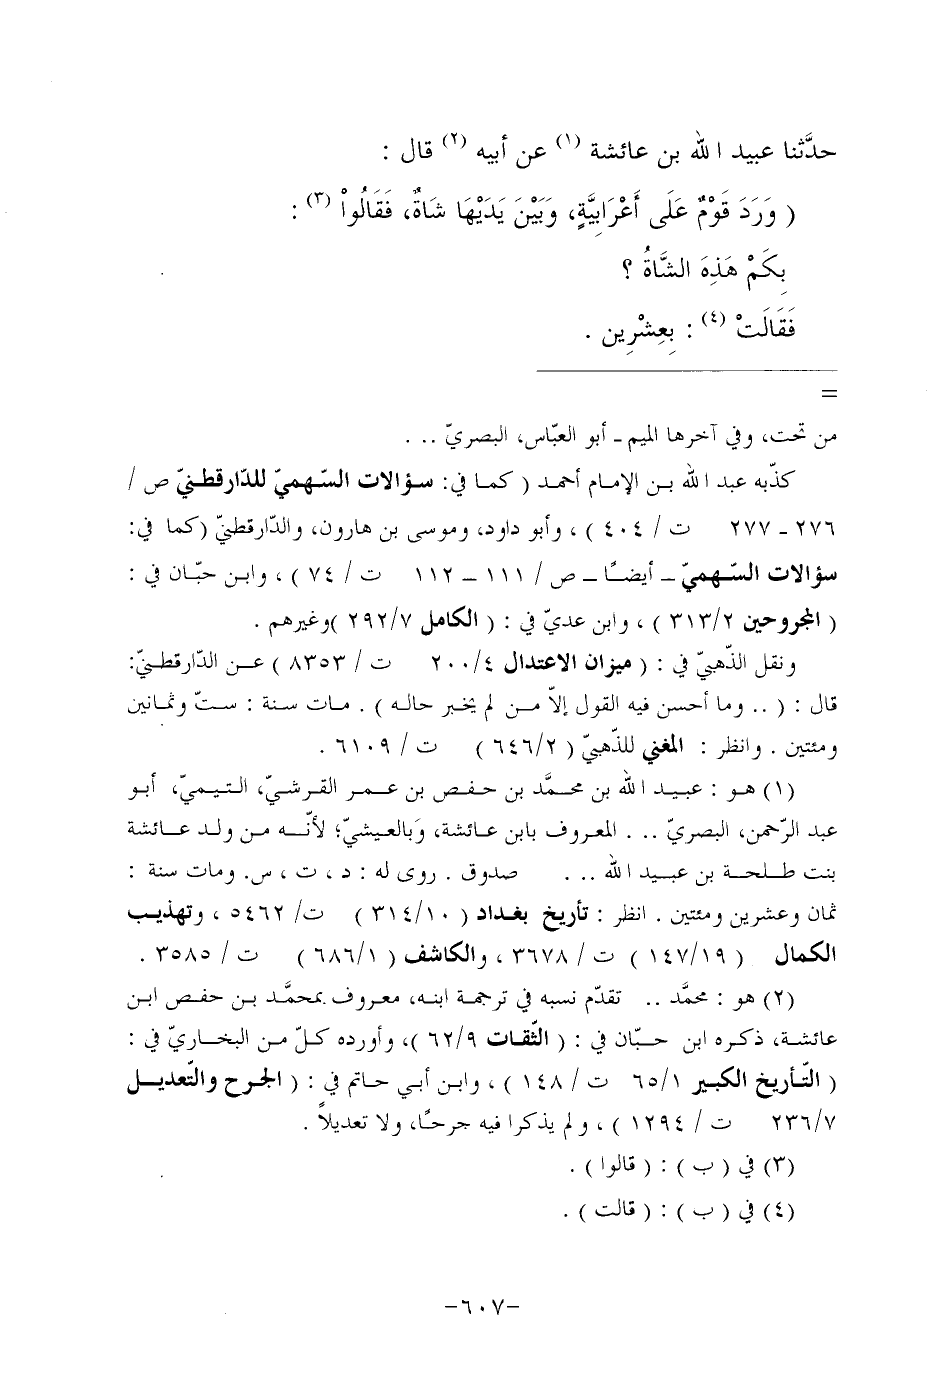 حدَّثنا عبيد الله بن عائشة (١) عن أبيه (٢) قال :
( وَرَدَ قَوْمٌ عَلَى أَعْرَابِيَّةٍ، وَبَيْنَ يَدَيْهَا شَاةٌ، فَقَالُواْ (٣) :
بِكَمْ هَذِهِ الشَّاةُ ؟
فَقَالَتْ (٤) : بِعِشْرِين .
=
من تحت، وفي آخرها الميم ـ أبو العبّاس، البصريّ .. .
كذّبه عبد الله بن الإمام أحمد ( كما في: سؤالات السّهميّ للدّارقطنيّ ص /
٢٧٦ ـ ٢٧٧ ت / ٤٠٤ ) ، وأبو داود، وموسى بن هارون، والدّارقطنيّ (كما في:
سؤالات السّهميّ ـ أيضًا ـ ص / ١١١ ـ ١١٢ ت / ٧٤ ) ، وابن حبّان في :
( المجروحين ٣١٣/٢ ) ، وابن عديّ في : ( الكامل ٢٩٢/٧ )وغيرهم .
ونقل الذّهبيّ في : ( ميزان الاعتدال ٢٠٠/٤ ت / ٨٣٥٣ ) عن الدّارقطنيّ:
قال : ( .. وما أحسن فيه القول إلاّ من لم يخبر حاله ) . مات سنة : ستّ وثمانين
ومئتين . وانظر : المغني للذّهبيّ ( ٦٤٦/٢ ) ت / ٦١٠٩ .
(١) هو : عبيد الله بن محمَّد بن حفص بن عمر القرشيّ، التيميّ، أبو
عبد الرّحمن، البصريّ .. . المعروف بابن عائشة، وبالعيشيّ؛ لأنّه من ولد عائشة
بنت طلحة بن عبيد الله .. . صدوق . روى له : د ، ت ، س. ومات سنة :
ثمان وعشرين ومئتين . انظر : تأريخ بغداد ( ٣١٤/١٠ ) ت/ ٥٤٦٢ ، وتهذيب
الكمال ( ١٤٧/١٩ ) ت / ٣٦٧٨ ، والكاشف ( ٦٨٦/١ ) ت / ٣٥٨٥ .
(٢) هو : محمَّد .. تقدّم نسبه في ترجمة ابنه، معروف بمحمَّد بن حفص ابن
عائشة، ذكره ابن حبّان في : ( الثّقات ٦٢/٩ )، وأورده كلّ من البخاريّ في :
( التّأريخ الكبير ٦٥/١ ت / ١٤٨ ) ، وابن أبي حاتم في : ( الجرح والتّعديل
٢٣٦/٧ ت / ١٢٩٤ ) ، ولم يذكرا فيه جرحًا، ولا تعديلاً .
(٣) في ( ب ) : ( قالوا ) .
(٤) في ( ب ) : ( قالت ) .
-٦٠٧-